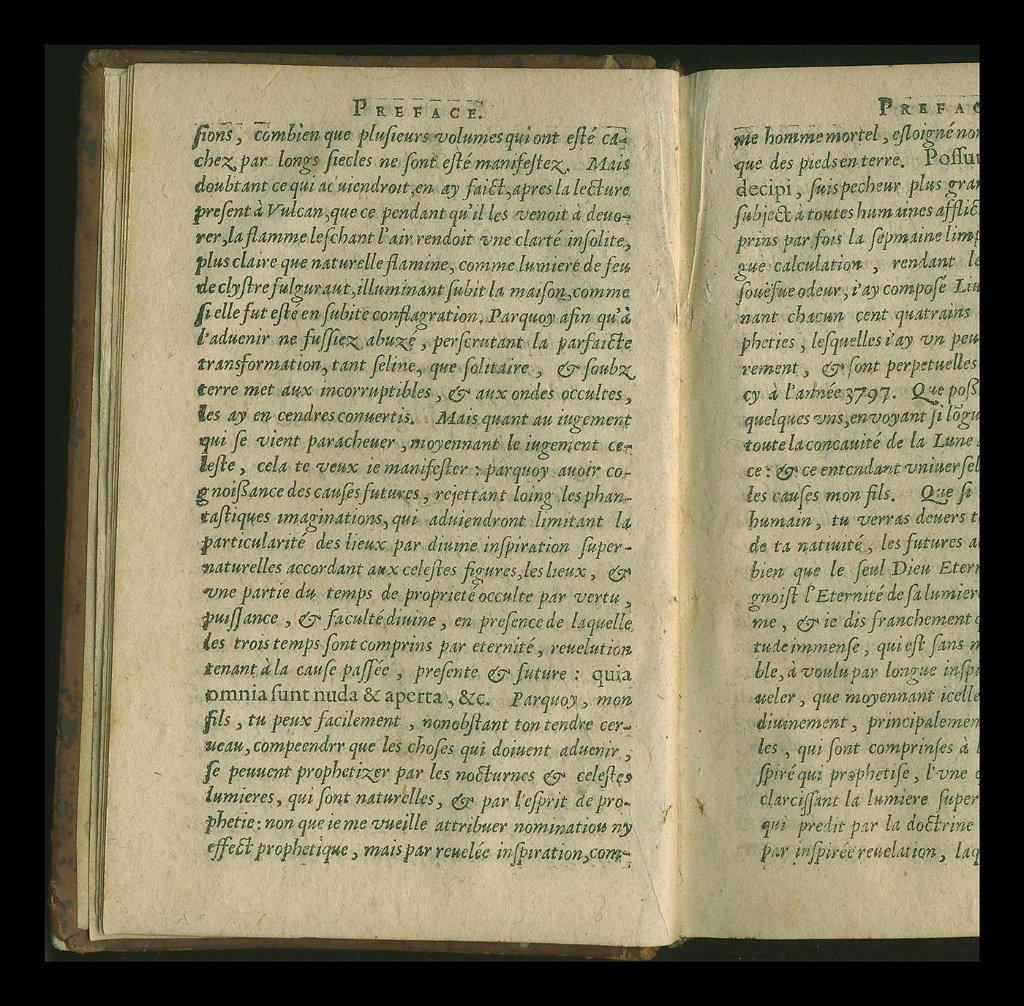 PREFACE.
ſions, combien que pluſieurs volumes qui ont eſté ca-
chez par longs ſiecles ne ſont eſté manifeſtez. Mais
doubtant ce qui aduiendroit, en ay faict, apres la lecture
preſent à Vulcan, que ce pendant qu'il les venoit à deuo-
rer, la flamme leſchant l'air rendoit vne clarté inſolite,
plus claire que naturelle flamine, comme lumiere de feu
de clyſtre fulguraut, illuminant ſubit la maiſon, comme
ſi elle fut eſté en ſubite conflagration. Parquoy afin qu'à
l'aduenir ne fuſſiez abuzé, perſcrutant la parfaicte
transformation, tant ſeline, que ſolitaire, & ſoubz
terre met aux incorruptibles, & aux ondes occultes,
les ay en cendres conuertis. Mais quant au iugement
qui ſe vient paracheuer, moyennant le iugement ce-
leſte, cela te veux ie manifeſter : parquoy auoir co-
gnoiſſance des cauſes futures, rejettant loing les phan-
taſtiques imaginations, qui aduiendront limitant la
particularité des lieux par diuine inſpiration ſuper-
naturelles accordant aux celeſtes figures, les lieux, &
vne partie du temps de proprieté occulte par vertu,
puiſſance, & faculté diuine, en preſence de laquelle
les trois temps ſont comprins par eternité, reuelution
tenant à la cauſe paſſée, preſente & future : quia
omnia ſunt nuda & aperta, &c. Parquoy, mon
fils, tu peux facilement, nonobſtant ton tendre cer-
ueau, compeendrr que les choſes qui doiuent aduenir,
ſe peuuent prophetizer par les nocturnes & celeſtes
lumieres, qui ſont naturelles, & par l'eſprit de pro-
phetie : non que ie me vueille attribuer nomination ny
effect prophetique, mais par reuelée inſpiration, com-
PREFAC
me homme mortel, eſloigné non
que des pieds en terre. Poſſu
decipi, ſuis pecheur plus gran
ſubject à toutes humaines afflic
prins par fois la ſepmaine limp
gue calculation, rendant le
ſouëfue odeur, i'ay compoſé Liu
nant chacun cent quatrains
pheties, leſquelles i'ay vn peu
rement, & ſont perpetuelles
cy à l'année 3797. Que poſſ
quelques vns, enuoyant ſi lõgu
toute la concauité de la Lune
ce : & ce entcndant vniuerſel
les cauſes mon fils. Que ſi
humain, tu verras deuers t
de ta natiuité, les futures a
bien que le ſeul Dieu Eter
gnoiſt l'Eternité de ſa lumier
me, & ie dis franchement
tude immenſe, qui eſt ſans m
ble, à voulu par longue inſpi
ueler, que moyennant icelle
diuinement, principalemen
les, qui ſont comprinſes à l
ſpiré qui prophetiſe, l'vne
clarciſſant la lumiere ſuper
qui predit par la doctrine
par inſpirée reuelation, laq